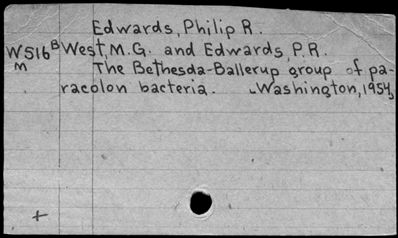 Edwards, Philip R.
W516ᴮ West, M.G. and Edwards, P.R.
m The Bethesda-Ballerup group of pa-
racolon bacteria. Washington, 1954,
+